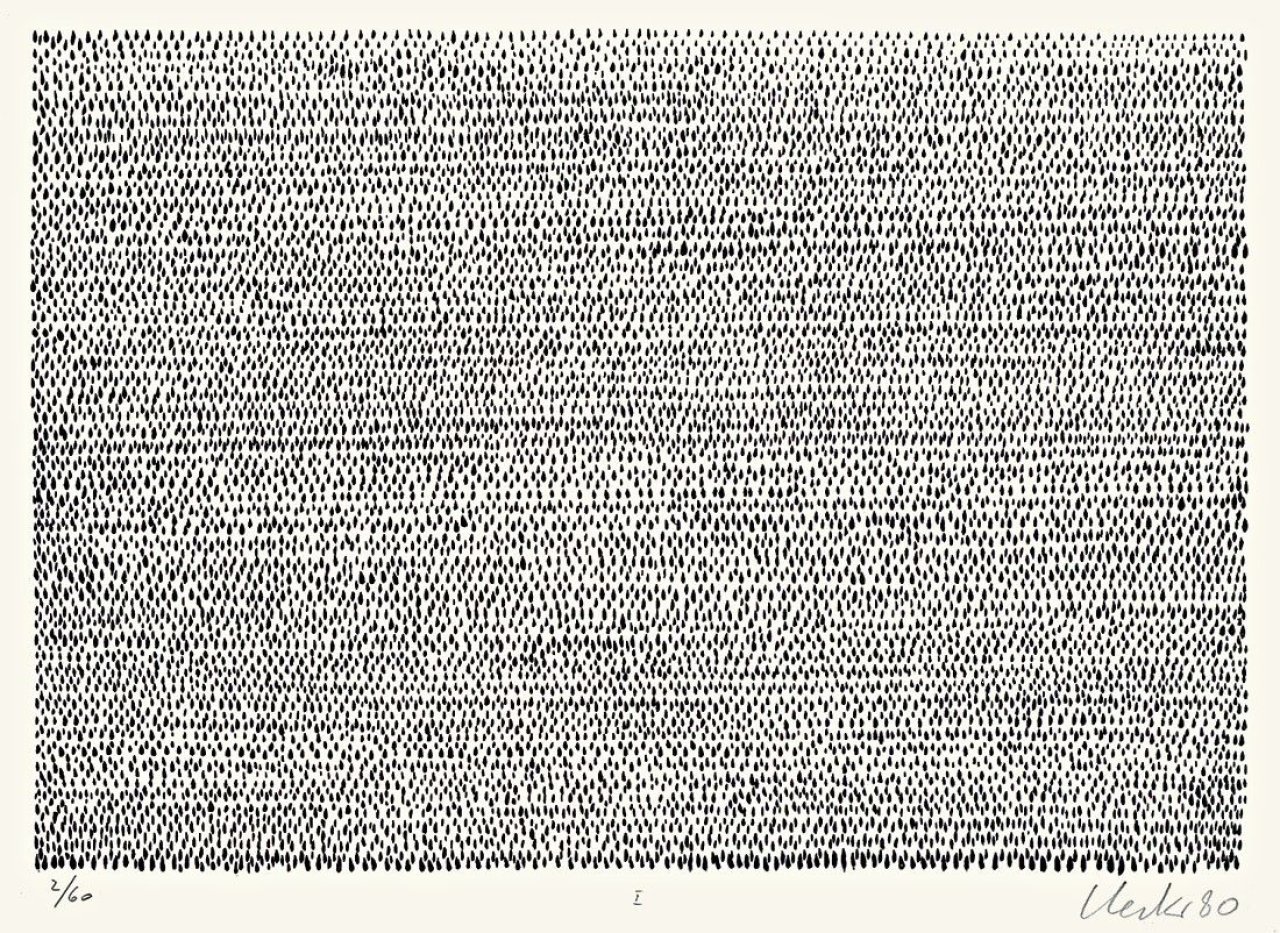 2/60
I
Uecker 80